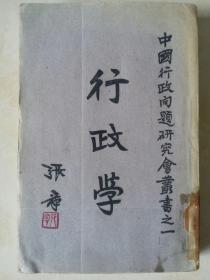 中國行政问題研究會叢書之一
行政学
張